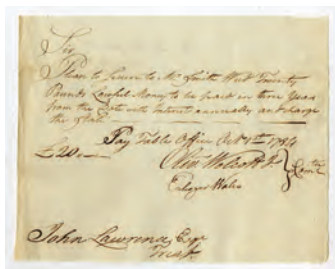 Sir
Please to secure to Mr Smith West Twenty
Pounds Lawful Money to be paid in three Years
from the date with Interest annually and charge
the State
Pay Table Office Octr 1st 1784
£20.—
Oliv Wolcott Jr
Comtee
Esqr
Treasr
John Lawrence